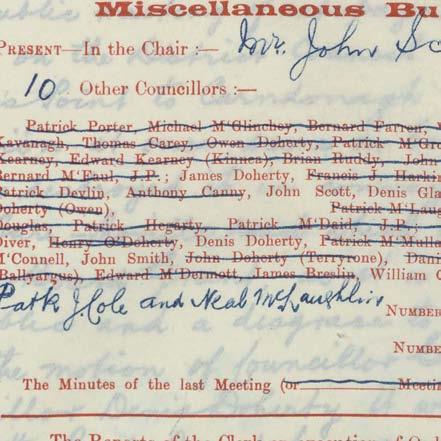 Miscellaneous Bu
PRESENT—In the Chair :— Mr. John Sc
10 Other Councillors :—
Patrick Porter, Michael M'Glinchey, Bernard Farren,
Kavanagh, Thomas Carey, Owen Doherty, Patrick M'Gr
Kearney, Edward Kearney (Kinnea), Brian Ruddy, John
Bernard M'Faul, J.P.; James Doherty, Francis J. Harkin
Patrick Devlin, Anthony Canny, John Scott, Denis Gla
Doherty (Owen), Patrick M'Lau
Douglas, Patrick Hegarty, Patrick M'Daid, J.P.;
Diver, Henry O'Doherty, Denis Doherty, Patrick M'Mull
M'Connell, John Smith, John Doherty (Terryrone), Dani
(Ballyargus), Edward M'Dermott, James Breslin, William
Patk J Cole and Neal McLaughlin
NUMBER
NUMBE
The Minutes of the last Meeting (or Meetin
The Reports of the Clerk